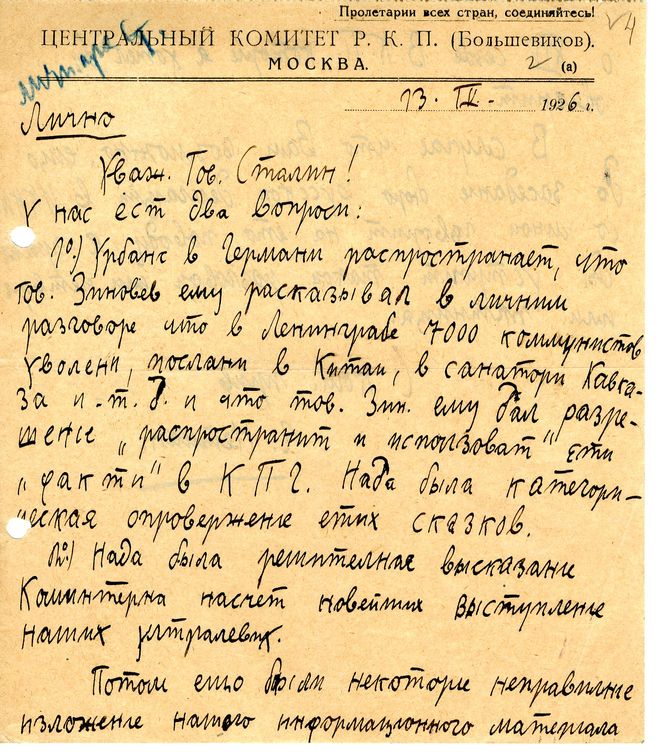 Пролетарии всех стран, соединяйтесь!
ЦЕНТРАЛЬНЫЙ КОМИТЕТ Р. К. П. (Большевиков).
МОСКВА.
2 (а)
13. IV - 1926 г.
Лично
Уваж. Тов. Сталин!
У нас ест два вопроси:
1º.) Урбанс в Германи распространает, что
тов. Зиновев ему расказывал в личним
разговоре что в Ленинграде 7000 коммунистов
уволени, послани в Китаи, в санатори Кавка-
за и-т. д. и что тов. Зин. ему дал разре-
шение „распространит и использоват" ети
„факти" в КПГ. Нада была категори-
ческая опровержение етих сказков.
Нада была решителнае высказание
Коминтерна насчет новейших выступление
наших ултралевих.
Потом ещо были некоторие неправилние
изложение нашого информационного материала